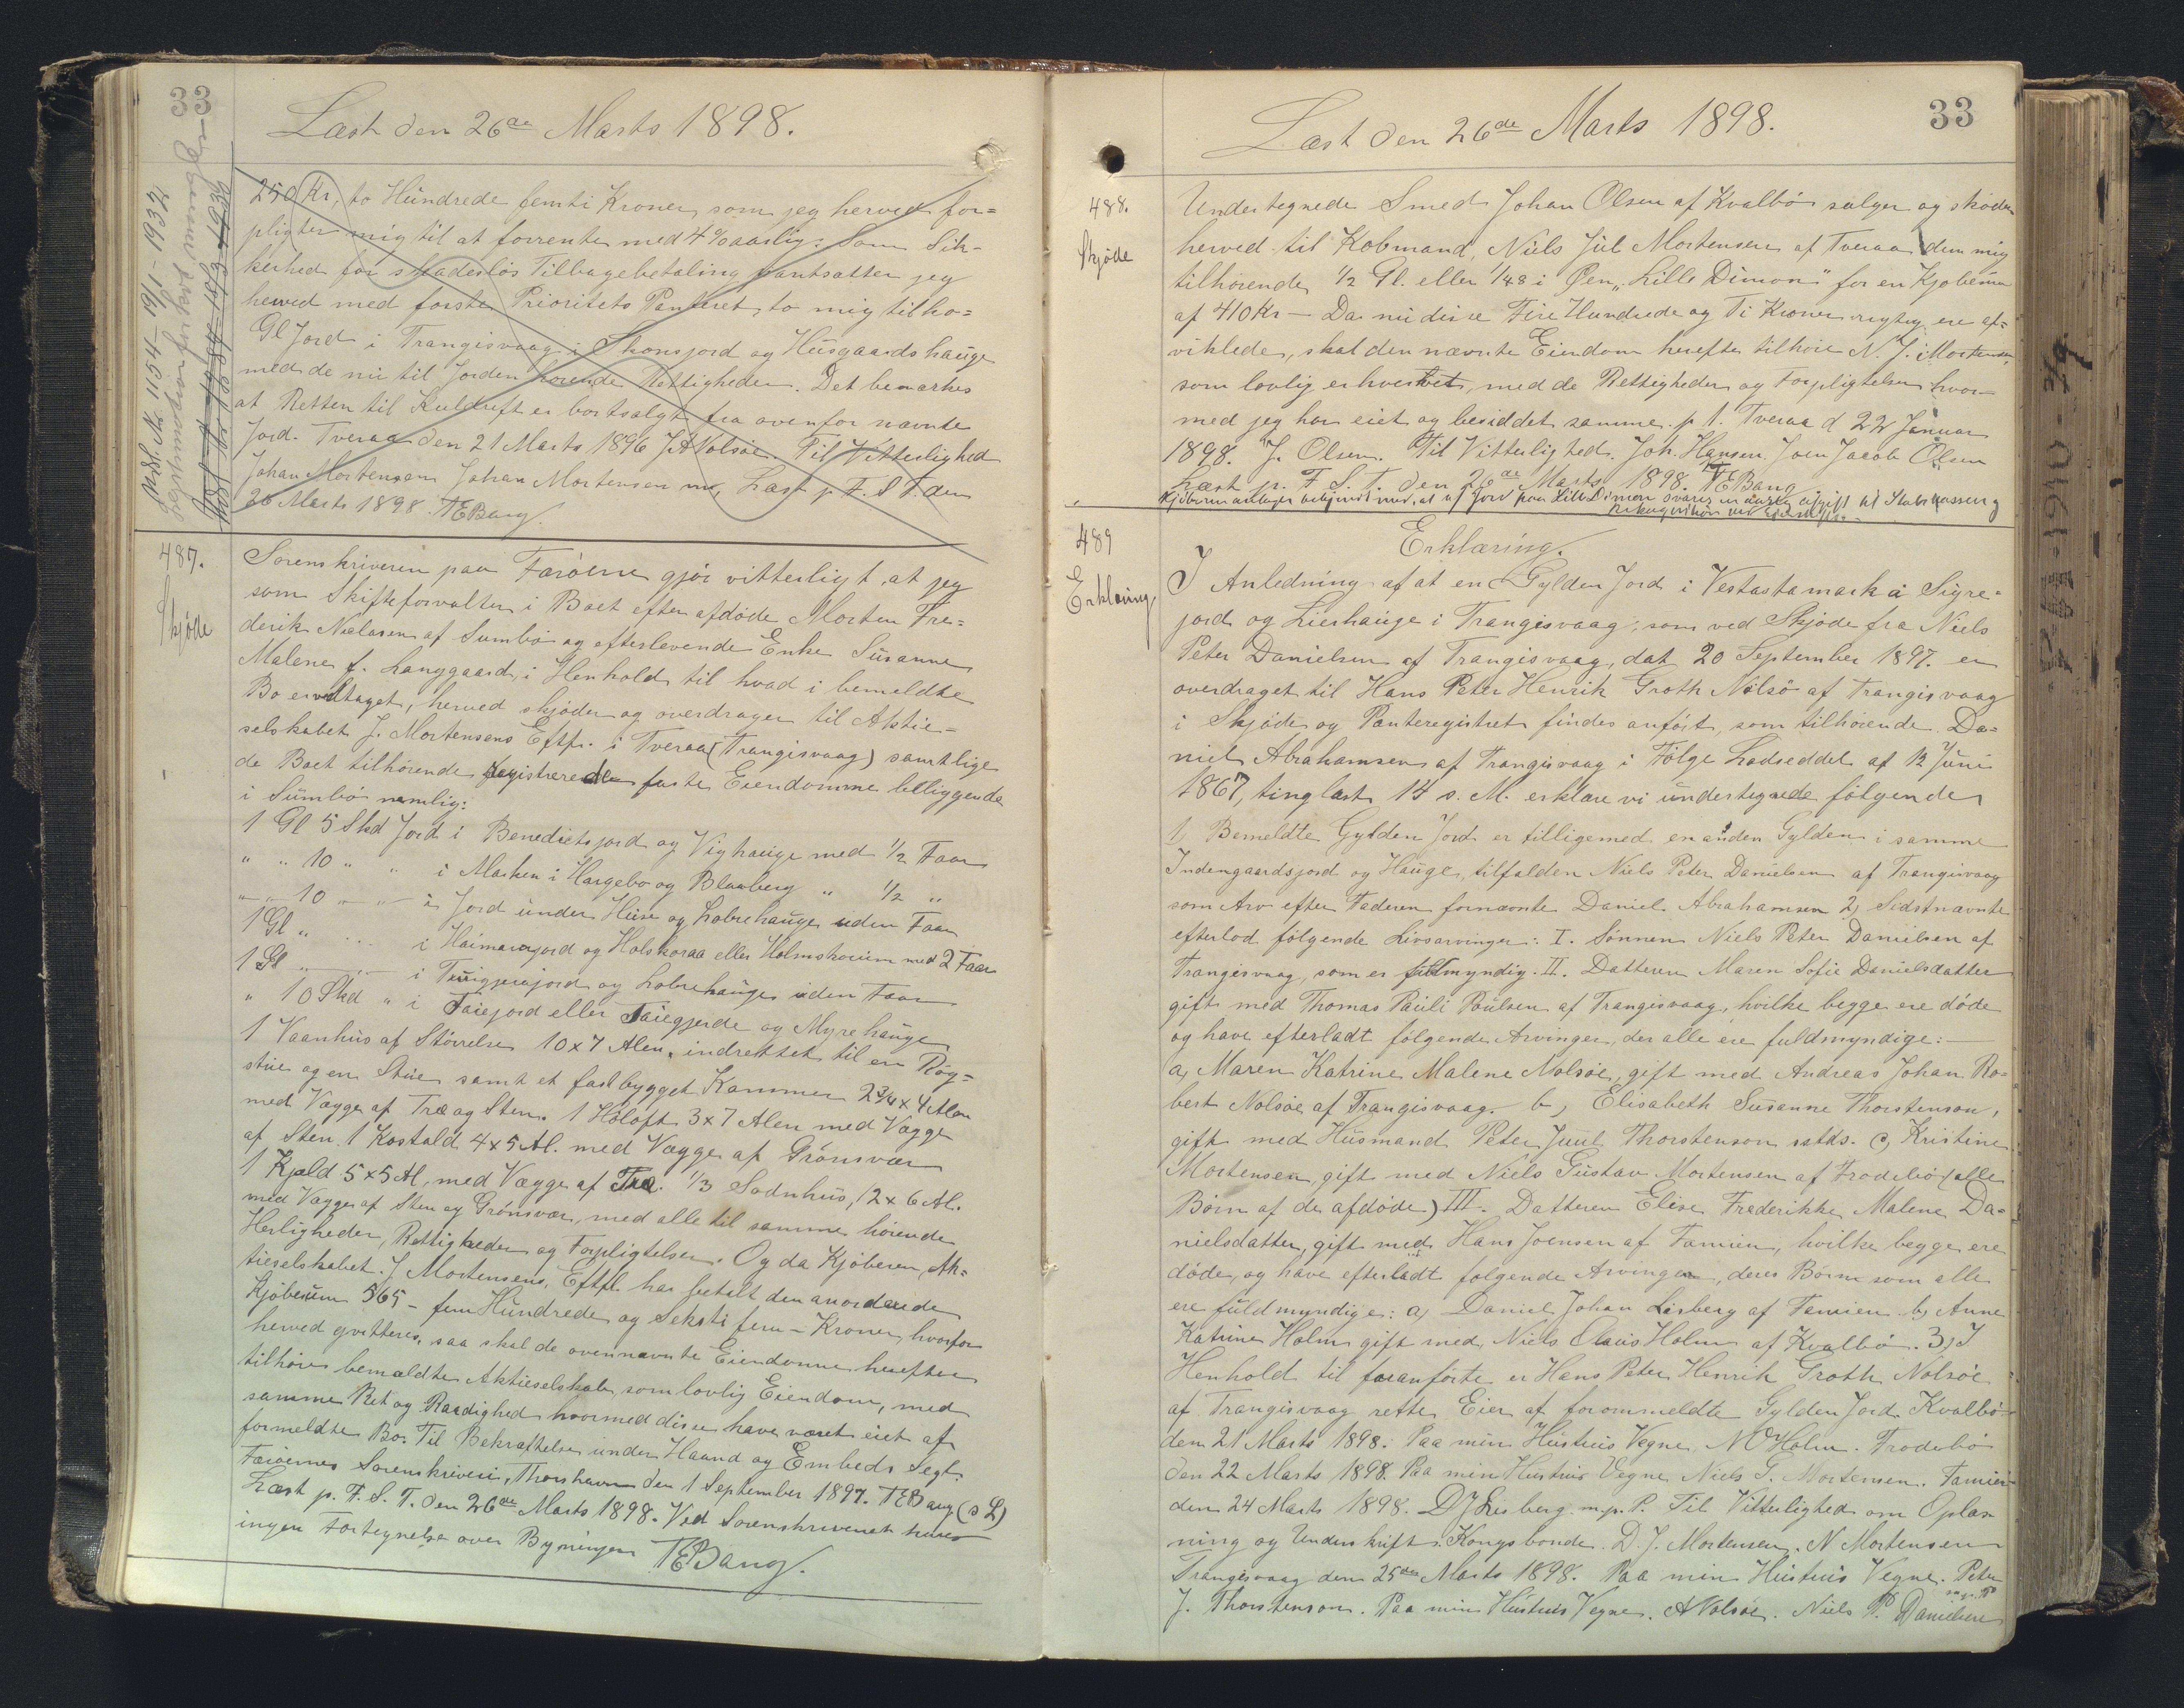 33
Læst den 26de Marts 1898.
250 Kr, to Hundrede femti Kroner, som jeg herved for=
pligter mig til at forrente med 4% aarlig: Som Sik-
kerhed for skadeslös Tilbagebetaling pantsætter jeg
herved med forste Prioritets Panteret to mig tilho=
Gl Jord i Trangisvaag i Skonsjord og Husgaards hauge
med de nu til Jorden hörende Rettigheder. Det bemærkes
at Retten til Kuldrift er bortsalgt fra ovenfor nævnte
Jord. Tveraa den 21 Marts 1896 J A Nolsöe. Til Vitterlighed
Johan Mortensen Johan Mortensen Læst p. F. S. T. den
26 Marts 1898. TEBang.
487.
Skjöde
Sorenskriveren paa Færöerne gjör vitterligt, at jeg
som Skifteforvalter i Boet efter afdöde Morten Fre=
derik Nielasen af Sumbö og efterlevende Enke Susanne
Malene f. Langgaard, i Henhold til hvad i bemeldte
Bo er vedtaget, herved skjöder og overdrager til Aktie=
selskabet J. Mortensens Eftfr. i Tveraa (Trangisvaag) samtlige
de Boet tilhörende registrerede faste Eiendomme beliggende
i Sumbö nemlig:
1 Gl 5 Skd Jord i Benedictsjord og Vighauge med 1/2 Faar
" " 10 " " i Marken i Hargebo og Blaaberg " 1/2 "
" " 10 " " i Jord under Huse og Lobrehauge uden Faar
1 Gl " " i Heimarajord og Holskoraa eller Holmskorum med 2 Faar
1 Gl " " i Tuigjerajord og Lobrehauge uden Faar
" 10 Skd " i Taiejord eller Taiegjerde og Myrehauge
1 Vaanhus af Störrelse 10x7 Alen, indrettet til en Røg=
stue og en Stue samt et fastbygget Kammer 2 3/4 x 4 Alen
med Vægge af Træ og Sten. 1 Höloft 3x7 Alen med Vægge
af Sten. 1 Kostald 4x5 Al. med Vægge af Grönsvær
1 Kjald 5x5 Al, med Vægge af Træ. 1/3 Sodnhus, 12 x 6 Al.
med Vægge af Sten og Grönsvær, med alle til samme hörende
Herligheder, Rettigheder og Forpligtelser. Og da Kjöberen, Ak=
tieselskabet J. Mortensens, Eftfl. har betalt den anordende
Kjöbesum 565 - fem Hundrede og Seksti fem - Kroner, hvorfor
herved qvitteres, saa skal de ovennævnte Eiendomme herefter
tilhöre bemældte Aktieselskab, som lovlig Eiendom, med
samme Ret og Raadighed hvormed disse have været eiet af
formeldte Bo. Til Bekræftelse under Haand og Embeds Segl.
Færöernes Sorenskriveri, Thorshavn den 1 September 1897. TEBang (s L)
Læst p. F. S. T. den 26de Marts 1898. Ved Sorenskriveriet haves
ingen Fortegnelse over Bygningen TEBang.
33
Læst den 26de Marts 1898.
488.
Skjöde
Undertegnede Smed Johan Olsen af Kvalbö sælger og sköder
herved til Kobmand, Niels Jul Mortensen af Tveraa den mig
tilhörende 1/2 Gl. eller 1/48 i Øen „Lille Dimon" for en Kjobesum
af 410 Kr — Da nu disse Fire Hundrede og Ti Kroner rigtig ere af=
viklede, skal den nævnte Eiendom herefter tilhöre N. J. Mortensen,
som lovlig erhvervet, med de Rettigheder og Forpligtelser hvor=
med jeg har eiet og besiddet samme. p. t. Tveraa d 22 Januar
1898. J. Olsen. Til Vitterlighed. Joh. Hansen. Joen Jacob Olsen
Læst p. F. S. T. den 26de Marts 1898. TEBang
489
Erklæring
Erklæring.
I Anledning af at en Gylden Jord i Vestastamark a Sigre=
jord og Lierhauge i Trangisvaag, som ved Skjöde fra Niels
Peter Danielsen af Trangisvaag, dat. 20 September 1897. er
overdraget til Hans Peter Henrik Groth Nölsö af Trangisvaag
i Skjöde og Panteregistret findes anfört, som tilhörende Da=
niel Abrahamsen af Trangisvaag i Fölge Lodseddel af 12 Juni
1867, tinglæst 14 s. M. erklære vi undertegnede fölgende
1, Bemeldte Gylden Jord er tilligemed en anden Gylden i samme
Indengaardsjord og Hauge, tilfalden Niels Peter Danielsen af Trangisvaag
som Arv efter Faderen fornævnte Daniel Abrahamsen 2, Sidstnævnte
efterlod fölgende Livsarvinger: I. Sönnen Niels Peter Danielsen af
Trangisvaag, som er fuldmyndig. II. Datteren Maren Sofie Danielsdatter
gift med Thomas Pauli Poulsen af Trangisvaag, hvilke begge ere döde
og have efterladt fölgende Arvinger, der alle ere fuldmyndige:
a, Maren Katrine Malene Nolsöe, gift med Andreas Johan Ro=
bert Nolsöe af Trangisvaag. b, Elisabeth Susanne Thorstenson,
gift med Husmand Peter Juul Thorstenson sstds. c, Kristine
Mortensen, gift med Niels Gustav Mortensen af Frodebö (alle
Börn af de afdöde) III. Datteren Elise Frederikke Malene Da=
nielsdatter, gift med Hans Joensen af Famien, hvilke begge ere
döde, og have efterladt folgende Arvinger, deres Börn som alle
ere fuldmyndige: a, Daniel Johan Lisberg af Famien b, Anne
Katrine Holm gift med Niels Olavis Holm af Kvalbö. 3, I
Henhold til foranförte er Hans Peter Henrik Groth Nolsöe
af Trangisvaag rette Eier af forommeldte Gylden Jord. Kvalbö
den 21 Marts 1898. Paa min Hustrus Vegne, N O Holm. Frodebö
den 22 Marts 1898. Paa min Hustrus Vegne Niels G. Mortensen. Famien
den 24 Marts 1898. D J Lisberg m. p. P. Til Vitterlighed om Oplæs-
ning og Underskrift: Kongsbonde. D. J. Mortensen. N Mortensen
Trangisvaag den 25de Marts 1898. Paa min Hustrus Vegne. Peter
J. Thorstenson. Paa min Hustrus Vegne. A Nolsöe. Niels P. Danielsen